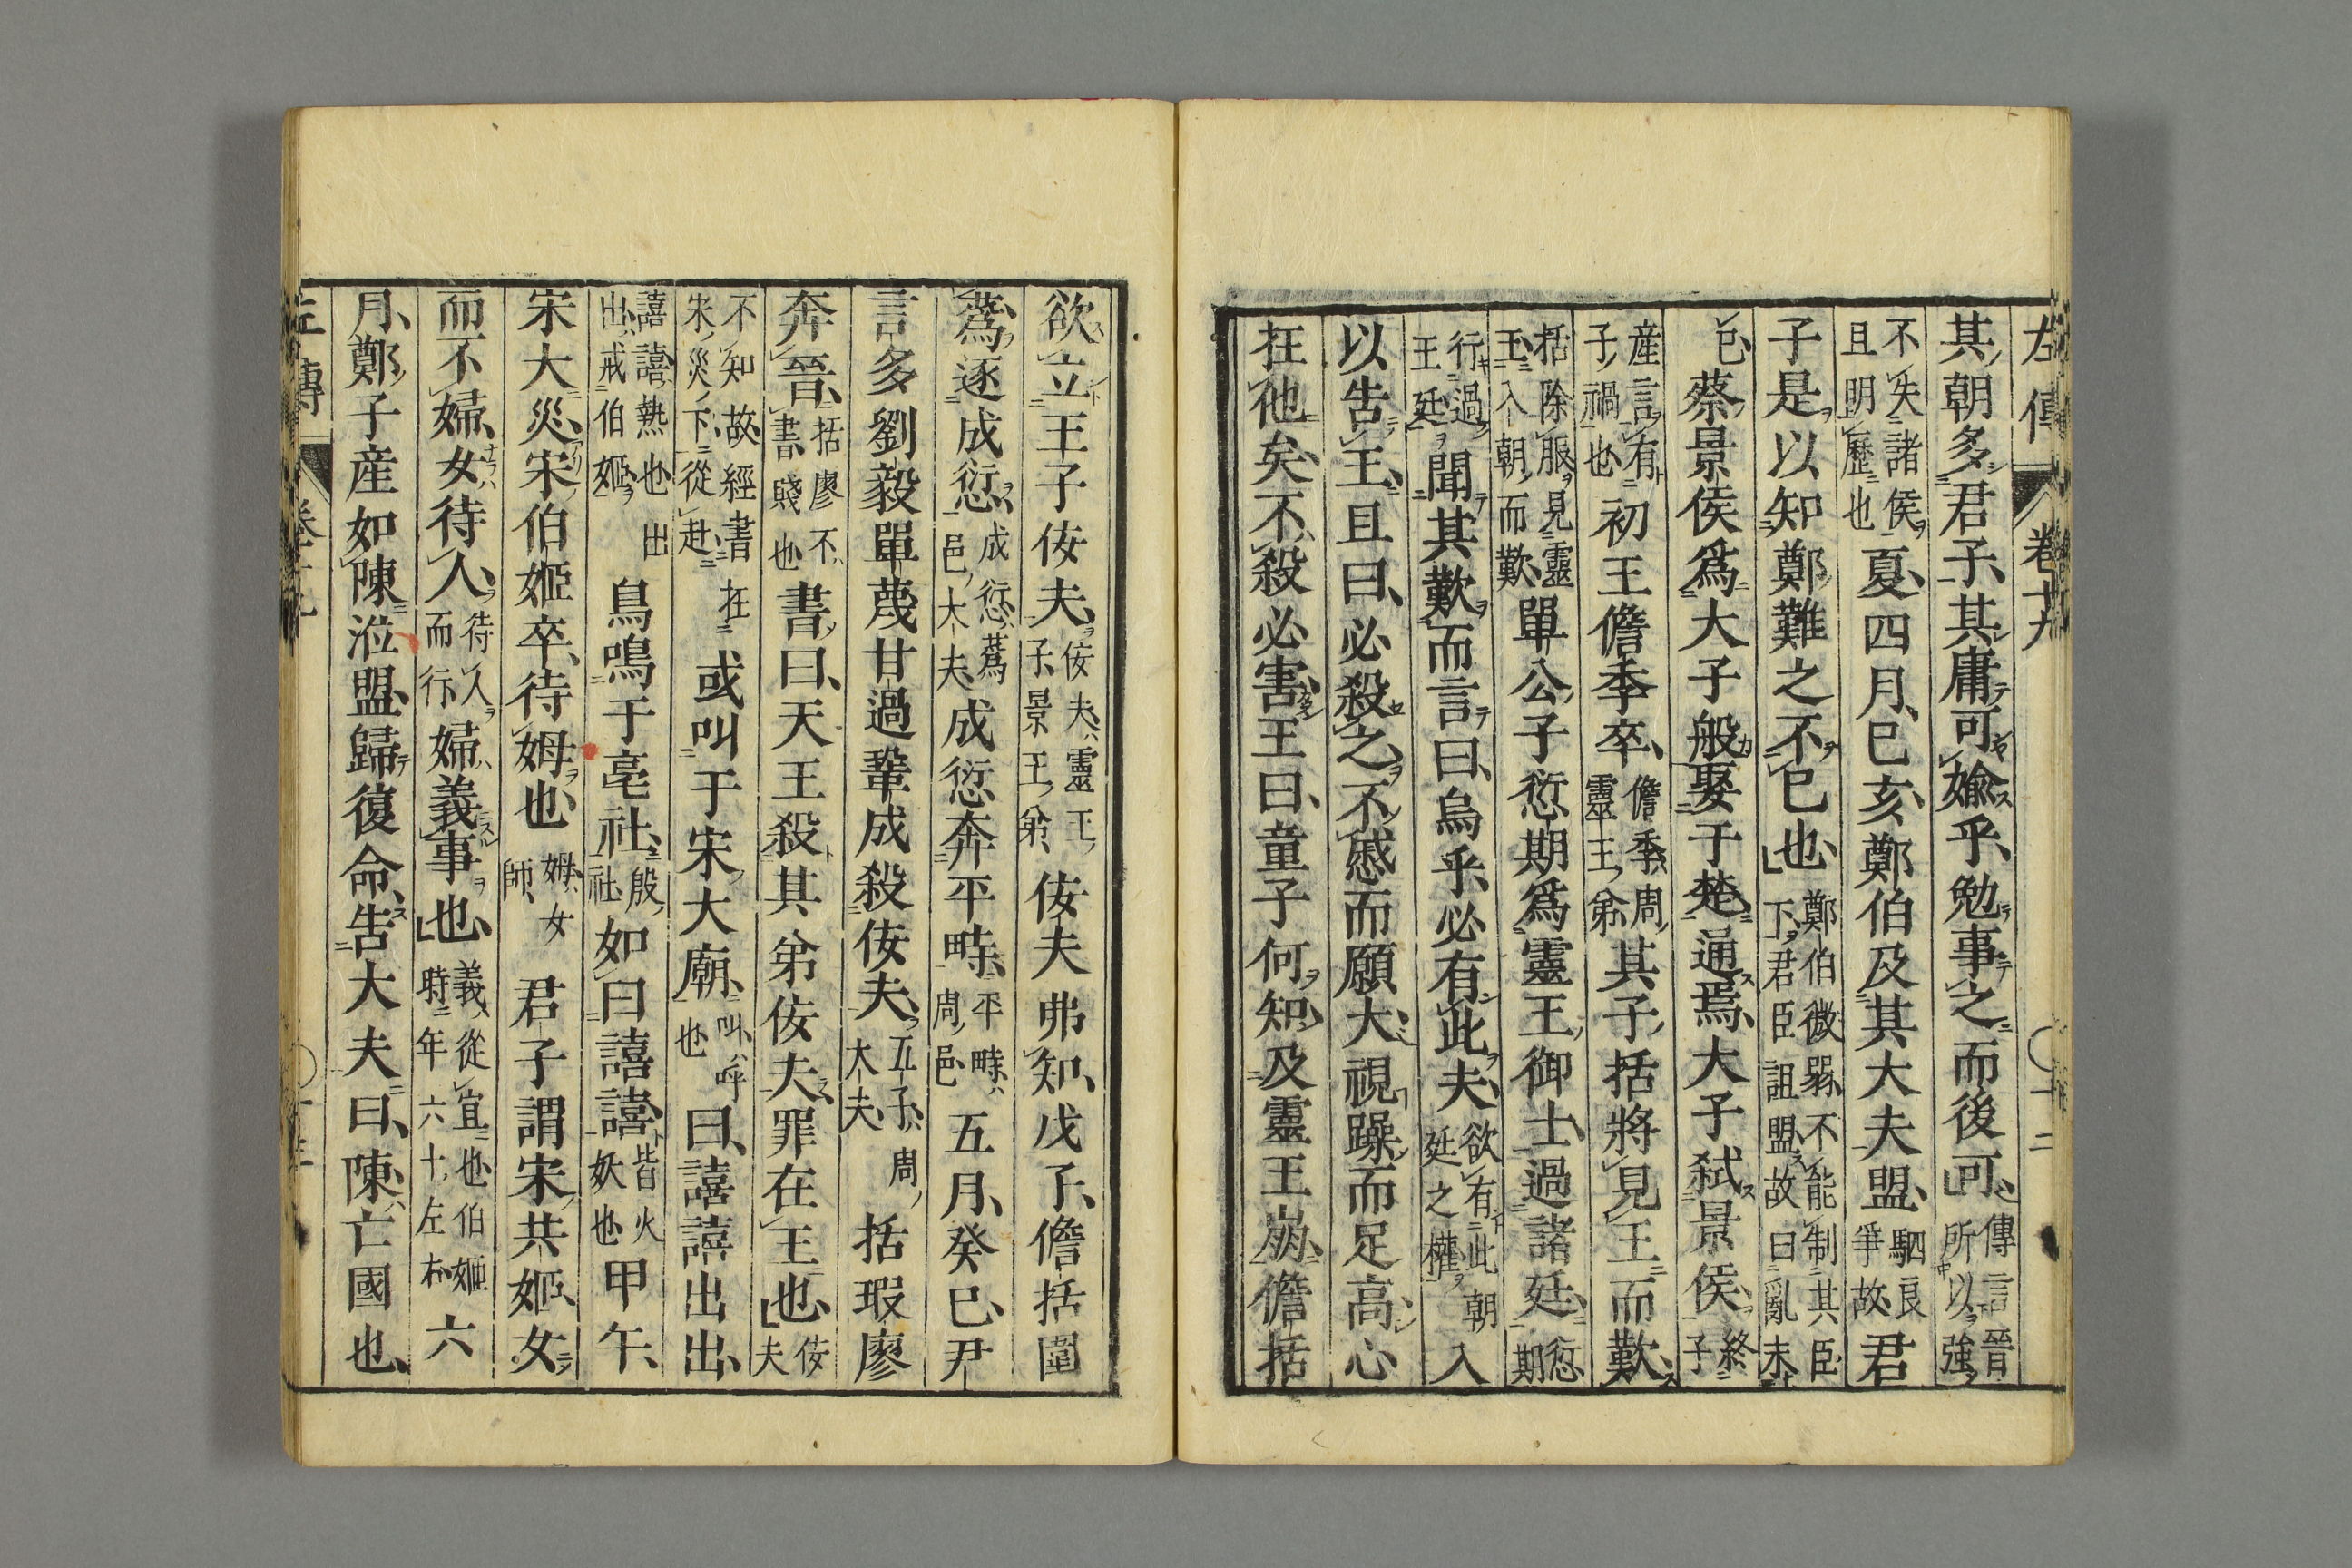 左傳 卷十九 〇十二
其朝多君子其庸可媮乎勉事之而後可傳言晉所以強
不失諸侯且明歷也夏四月己亥鄭伯及其大夫盟駟良爭故君
子是以知鄭難之不已也鄭伯微弱不能制其臣下君臣詛盟故曰亂未
已蔡景侯爲大子般娶于楚通焉大子弑景侯終子
産言有子禍也初王儋季卒儋季周靈王弟其子括將見王而歎
括除服見靈王入朝而歎單公子愆期爲靈王御士過諸廷愆期
行過王廷聞其歎而言曰烏乎必有此夫欲有此朝廷之權入
以告王且曰必殺之不慼而願大視躁而足高心
在他矣不殺必害王曰童子何知及靈王崩儋括
欲立王子佞夫佞夫靈王子景王弟佞夫弗知戊子儋括圍
蔿逐成愆成愆蔿邑大夫成愆奔平畤平畤周邑五月癸巳尹
言多劉毅單蔑甘過鞏成殺佞夫五子周大夫括瑕廖
奔晉括廖不書賤也書曰天王殺其弟佞夫罪在王也佞夫
不知故經書在宋災下從赴或叫于宋大廟叫呼也曰譆譆出出
譆譆熱也出出戒伯姬鳥鳴于亳社殷社如曰譆譆皆火妖也甲午
宋大災宋伯姬卒待姆也姆女師君子謂宋共姬女
而不婦女待人待人而行婦義事也義從宜也伯姬時年六十左右六
月鄭子産如陳涖盟歸復命告大夫曰陳亡國也
左傳 卷十九 〇十三